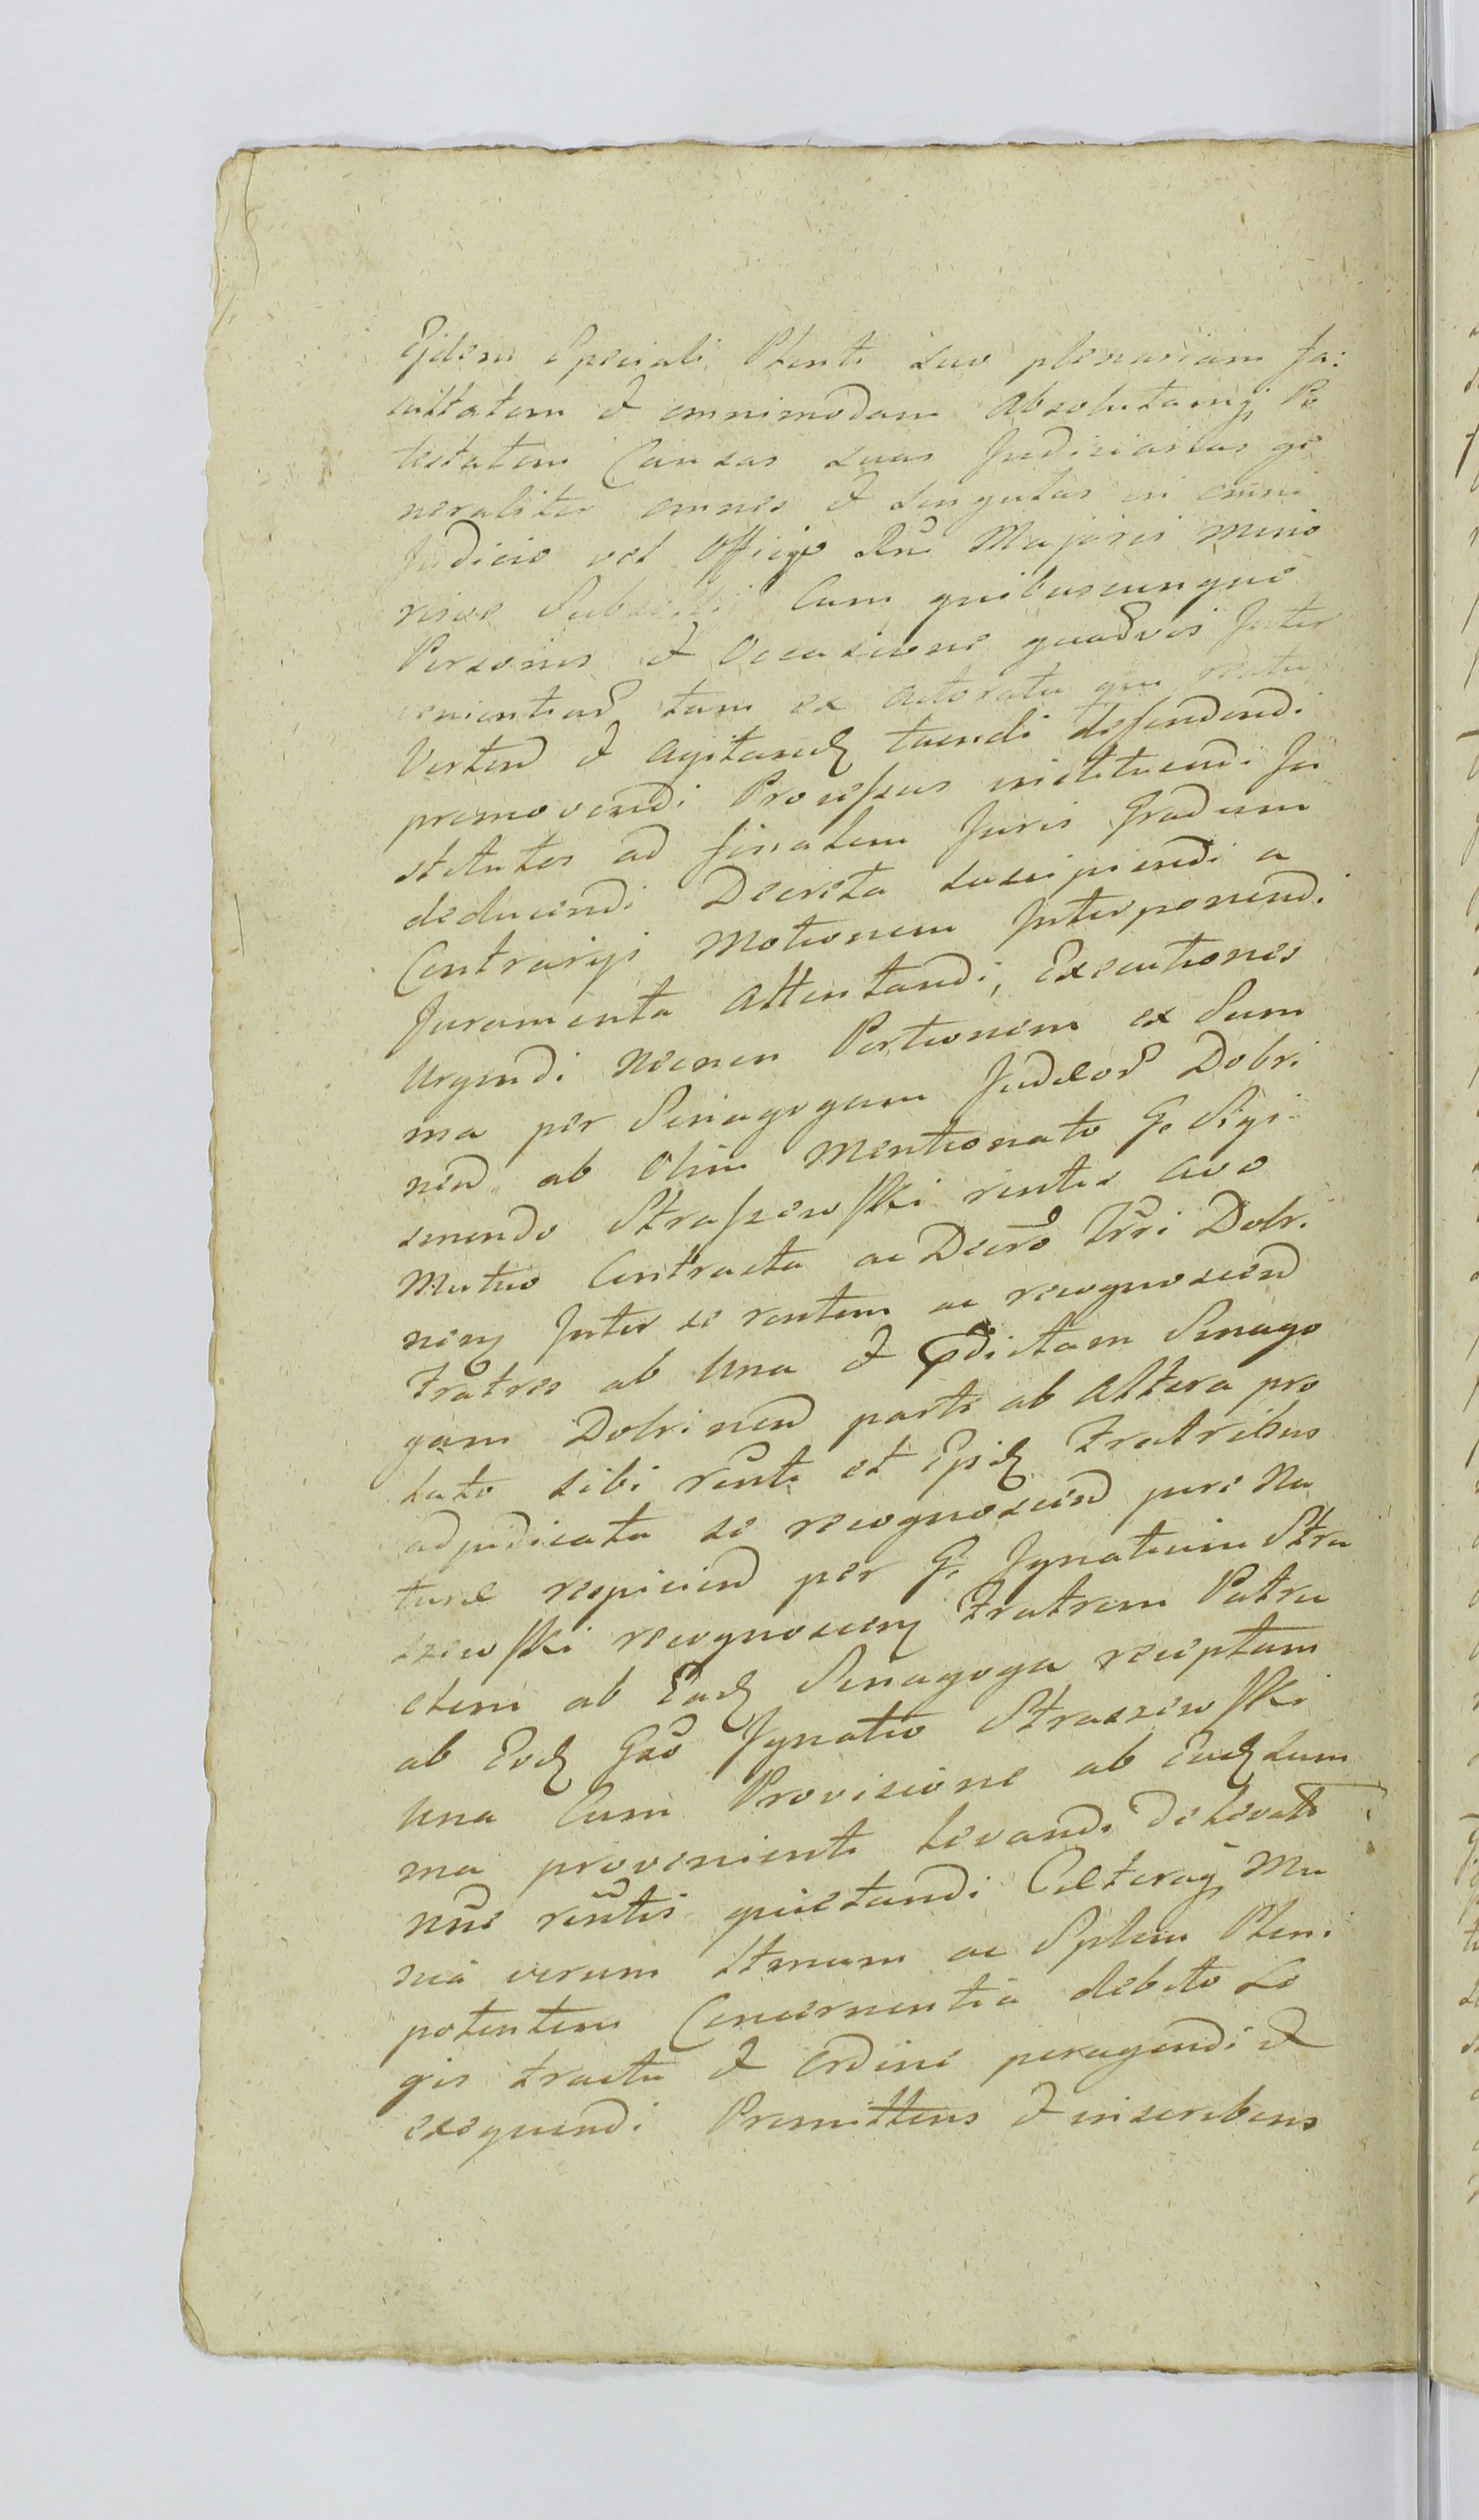 Ejdem Speciali Plenti suo plenariam fa:
cultatem & omnimodam Absolutamq; Po
testatem Causas suas Judiciarias ge
neraliter omnes & singulas in omni
Judicio vel Officijo Rni Majoris mino
risve Subselii Cum quibuscunque
Personis & Occasione quadvis Inter
venientiad tam ex actoratu qm reatu
Verten & Agitand tuendi defendendi
promovendi Processus instituendi In
stitutos ad finalem Juris Gradum
deducendi Decreta suscipiendi a
Contrarijs Motionem Interponendi
Juramenta Attentandi, Executiones
Urgendi Necnon Portionem ex Sum
ma per Sinagogam Judæor Dobri
nen ab Olim Mentionato G. Sigi
smundo Straszewski rentis avo
Mutuo Contracta ac Decro Trri Dobri
nen Inter se rentem ac recognoscen
Fratres ab Una & prædictam Sinago
gam Dobrinen parte ab Altera pro
lato sibi renti et Ejusd Fratribus
adjudicata se recognoscen jure Na
turæ respicien per G. Ignatium Stra
szewski recognoscen Fratrem Patru
elem ab Ead Sinagoga receptam
ab Eod Gso Ignatio Straszewski
Una Cum Provisione ab Ead Sum
ma provenienti levandi De levatis
nne rentis quietandi Cæteraq Mu
nia verum Ltmum ac Splem Pleni
potentem Concernentia debito Le
gis tractu & Ordine peragendi &
exequendi Promittens & inscribens